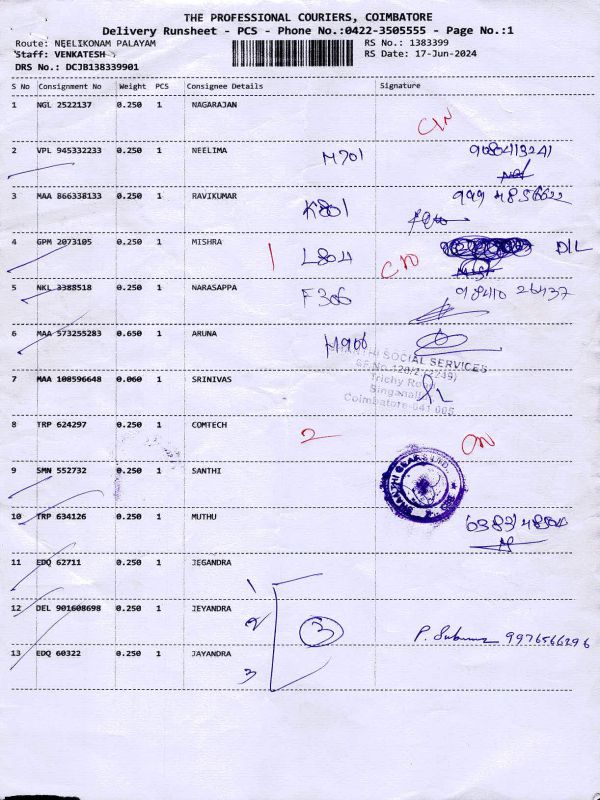 THE PROFESSIONAL COURIERS, COIMBATORE
Delivery Runsheet - PCS - Phone No.:0422-3505555 - Page No.:1
Route: NEELIKONAM PALAYAM RS No.: 1383399
Staff: VENKATESH RS Date: 17-Jun-2024
DRS No.: DCJB138339901
S No Consignment No Weight PCS Consignee Details Signature
1 NGL 2522137 0.250 1 NAGARAJAN
2 VPL 945332233 0.250 1 NEELIMA M701 9080413241
3 MAA 866338133 0.250 1 RAVIKUMAR K801
4 GPM 2073105 0.250 1 MISHRA 1 L804 D/L
5 NKL 3388518 0.250 1 NARASAPPA F306 98410 26437
6 MAA 573255283 0.650 1 ARUNA M906
SOCIAL SERVICES
7 MAA 108596648 0.060 1 SRINIVAS
Trichy Road
Singanallur
Coimbatore-641 005
8 TRP 624297 0.250 1 COMTECH 2
9 SMN 552732 0.250 1 SANTHI
10 TRP 634126 0.250 1 MUTHU
11 EDQ 62711 0.250 1 JEGANDRA
1
12 DEL 901608698 0.250 1 JEYANDRA 2 3 9976566296
13 EDQ 60322 0.250 1 JAYANDRA 3